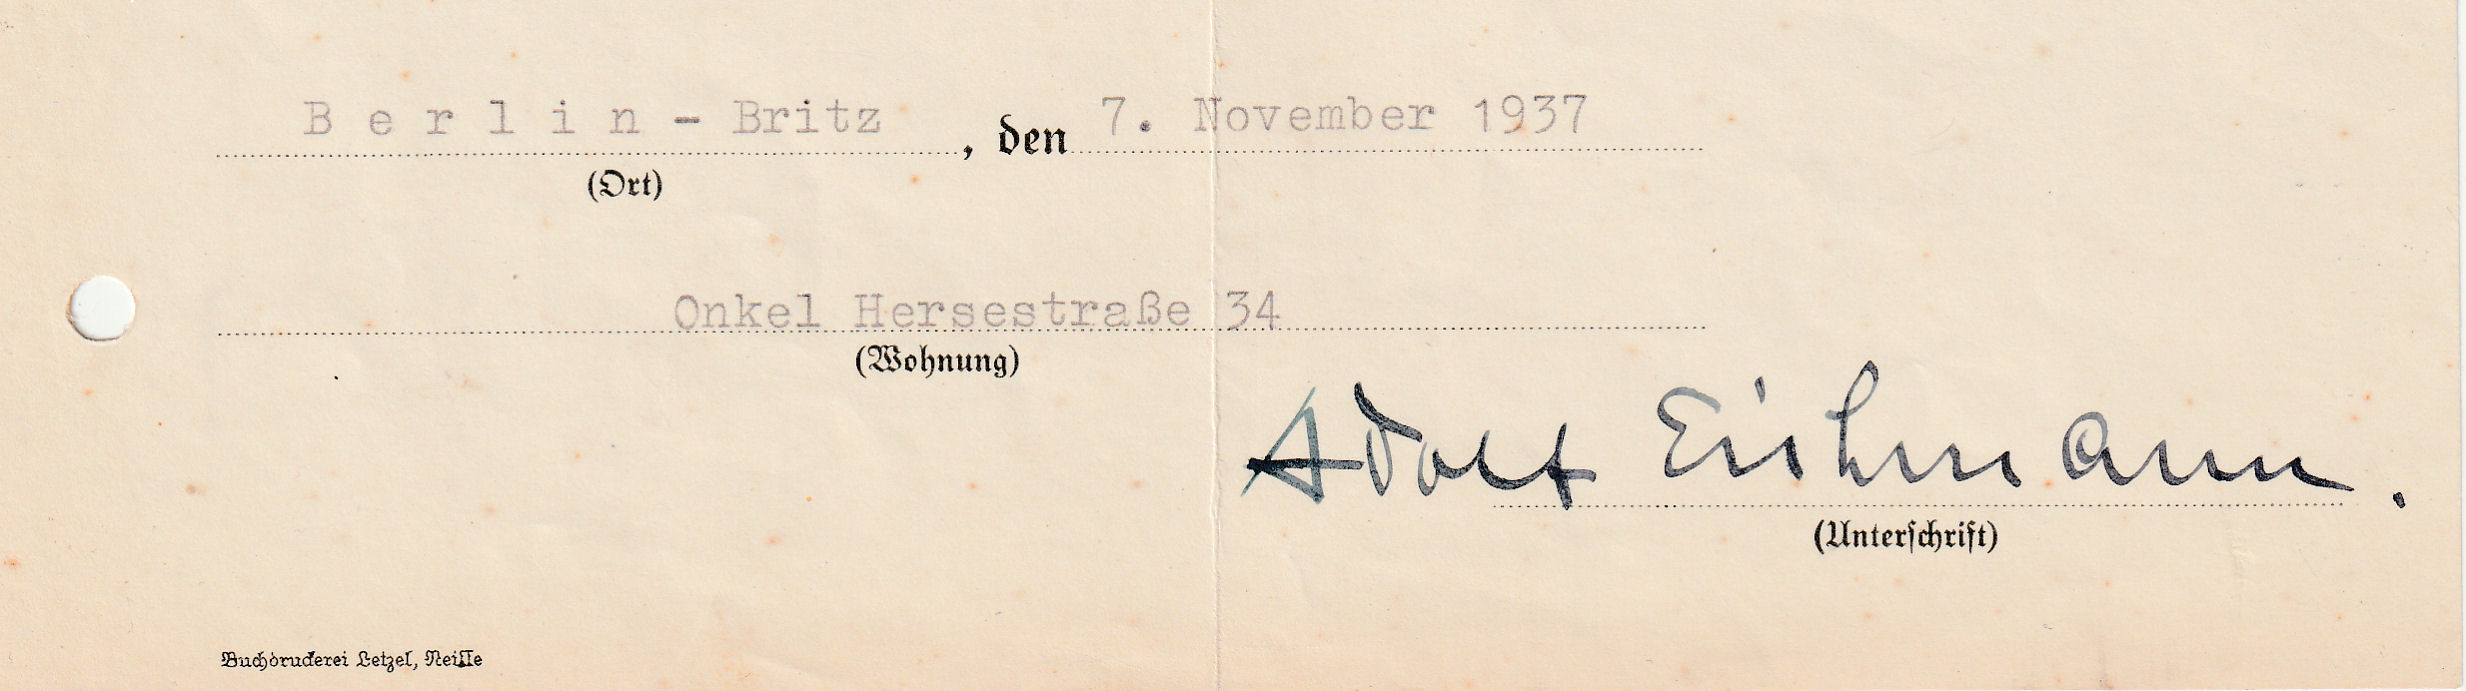 Berlin - Britz, den 7. November 1937
(Ort)
Onkel Hersestraße 34
(Wohnung)
Adolf Eichmann.
(Unterschrift)
Buchdruckerei Letzel, Neisse